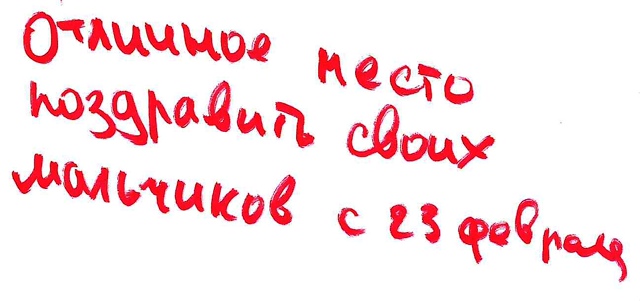 Отличное место
поздравить своих
мальчиков с 23 февраля